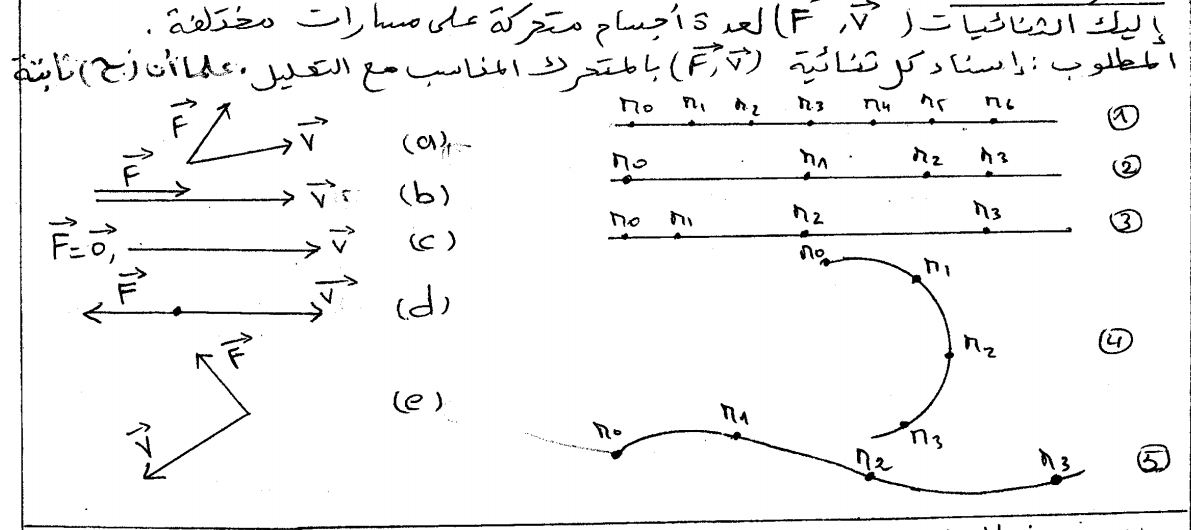 إليك الثنائيات (F, V) لعدة أجسام متحركة على مسارات مختلفة.
المطلوب: إسناد كل ثنائية (F, V) بالمتحرك المناسب مع التعليل. علما أن (ح) ثابتة
F V (a)
F V (b)
F = 0, V (c)
F V (d)
F V (e)
M0 M1 M2 M3 M4 M5 M6 ①
M0 M1 M2 M3 ②
M0 M1 M2 M3 ③
M0 M1 M2 M3 ④
M0 M1 M2 M3 ⑤